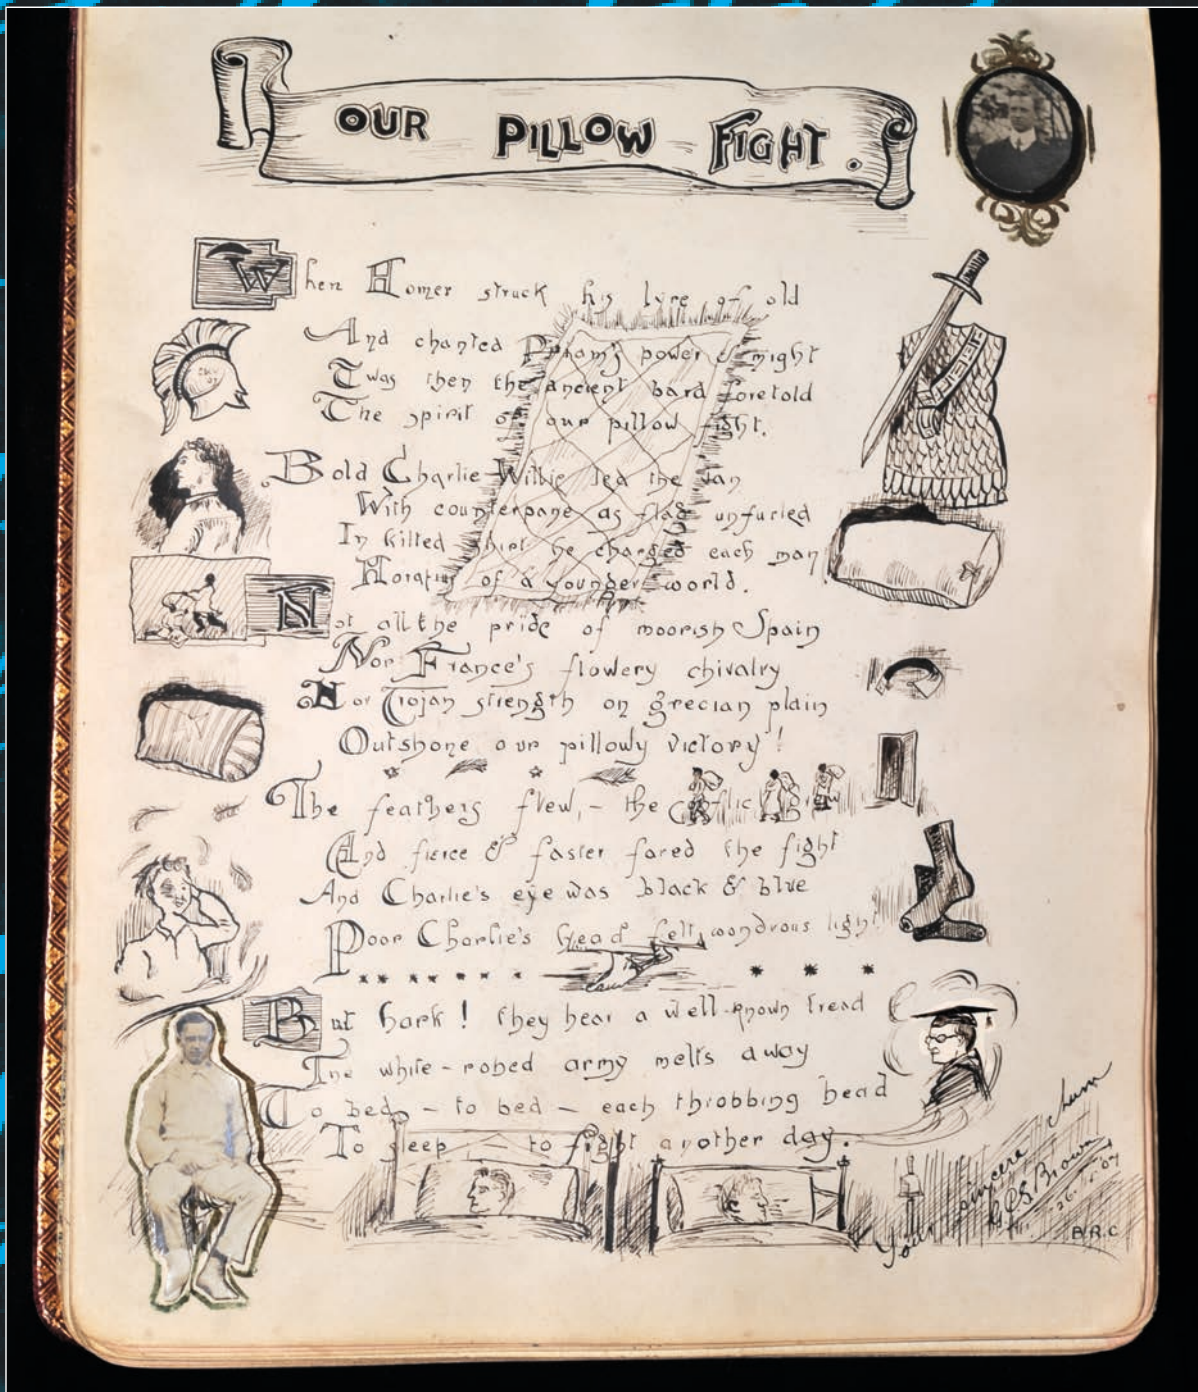 OUR PILLOW FIGHT.
When Homer struck his lyre of old
And chanted Priam's power & might
Twas then the ancient bard foretold
The spirit of our pillow fight.
Bold Charlie Willie led the van
With counterpane as flag unfurled
In kilted shirt he charged each man
Horatius of a younger world.
Not all the pride of moorish Spain
Nor France's flowery chivalry
Nor Trojan strength on grecian plain
Outshone our pillowy victory!
The feathers flew, - the conflict grew
And fierce & faster fared the fight
And Charlie's eye was black & blue
Poor Charlie's head felt wondrous light
But hark! they hear a well-known tread
The white-robed army melts away
To bed - to bed - each throbbing head
To sleep - to fight another day.
Your sincere chum
Brown
B.R.C